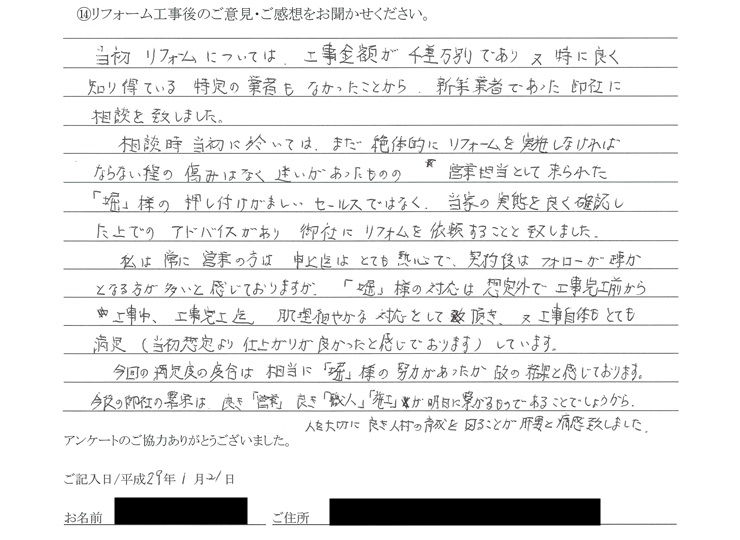 ⑭リフォーム工事後のご意見・ご感想をお聞かせください。
当初 リフォームについては、工事金額が 千差万別であり 又 特に良く
知り得ている 特定の業者も なかったことから、新築業者であった 御社に
相談を致しました。
相談時 当初に於いては、まだ 絶体的に リフォームを 実施しなければ
ならない程の 傷みはなく 迷いがあったものの 営業担当として来られた
「堀」様の 押し付けがましい セールスではなく、当家の 実態を良く確認し
た上での アドバイスがあり 御社に リフォームを 依頼することと 致しました。
私は 常に 営業の方は 申込迄は とても 熱心で、契約後は フォローが 疎か
となる方が 多いと 感じておりますが、「堀」様の対応は 想定外で 工事完工前から
工事中、工事完工迄、肌理穏やかな 対応をして 頂き、又 工事自体も とても
満足 (当初想定より 仕上がりが 良かったと感じております) しています。
今回の満足度の度合は 相当に「堀」様の 努力があったが 故の 結果と感じております。
今後の御社の繁栄は、良き「営業」良き「職人」「施工」が 明日に繋がるものであることでしょうから、
人を大切に 良き人材の育成を 図ることが 肝要と 痛感致しました。
アンケートのご協力ありがとうございました。
ご記入日/平成29年 1月 21日
お名前 ご住所